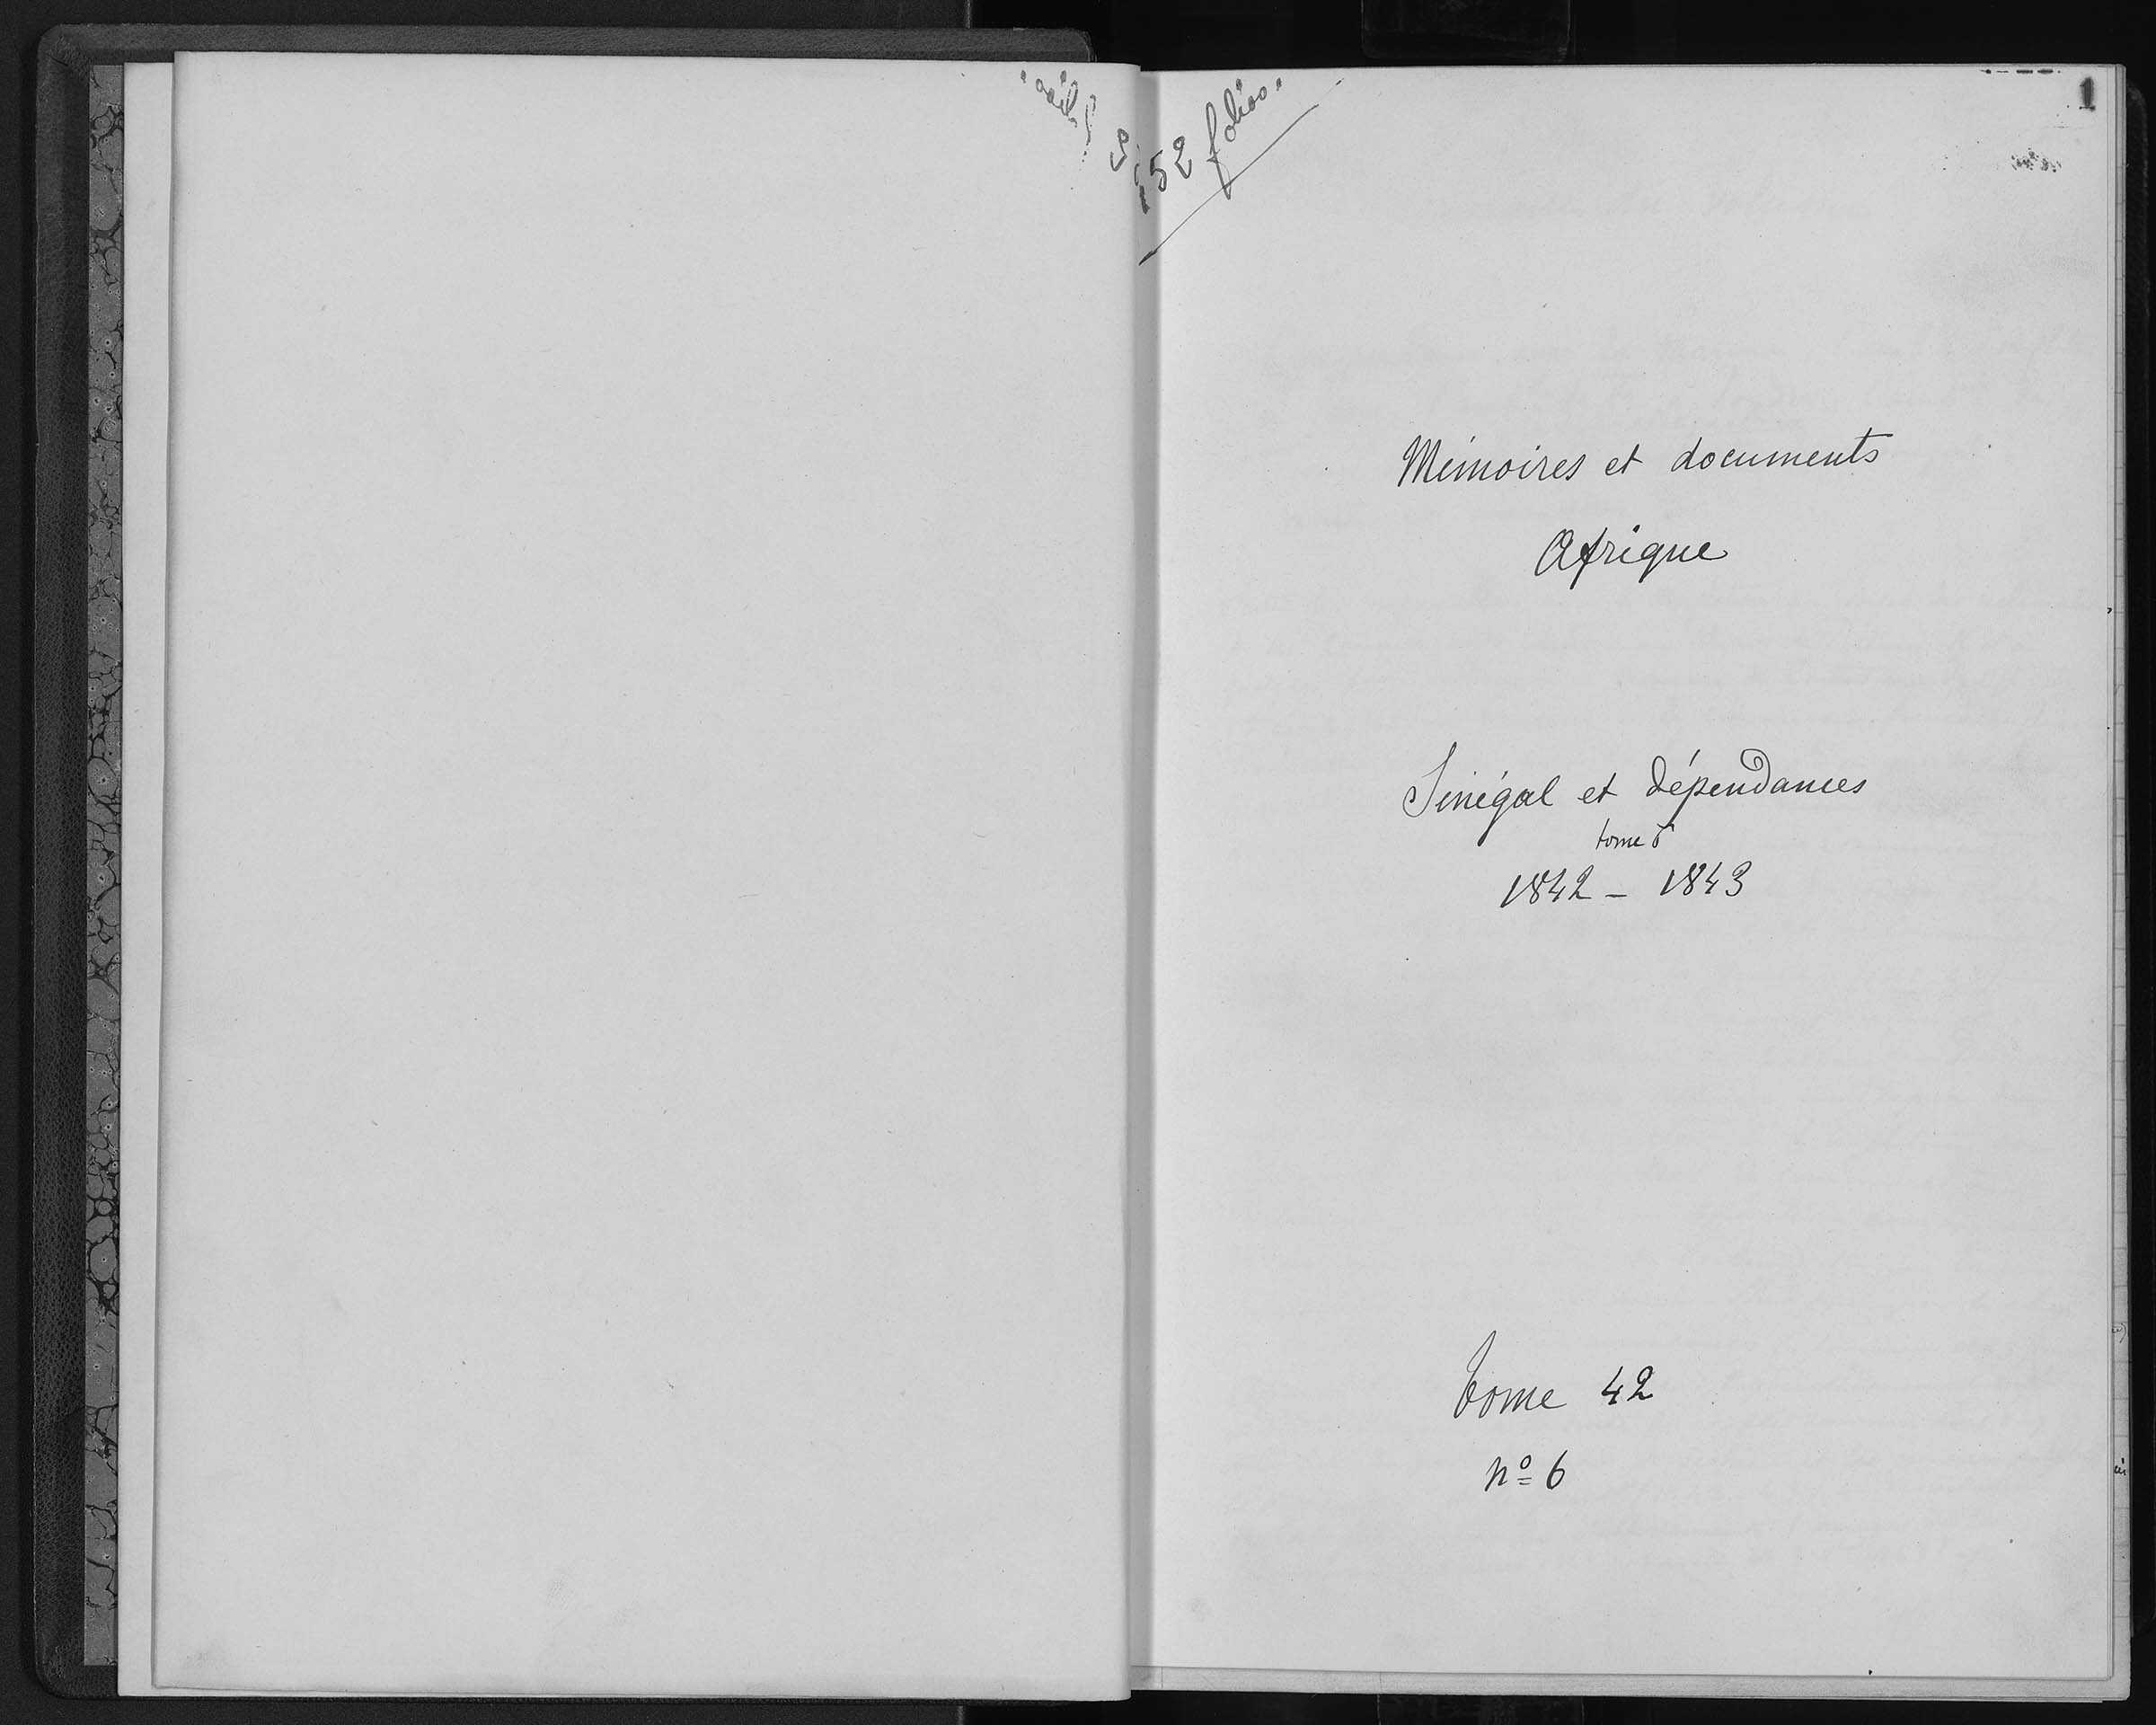 1
152 folios.
Mémoires et documents
Afrique
Sénégal et dépendances
tome 6
1842 – 1843
Tome 42
nº 6